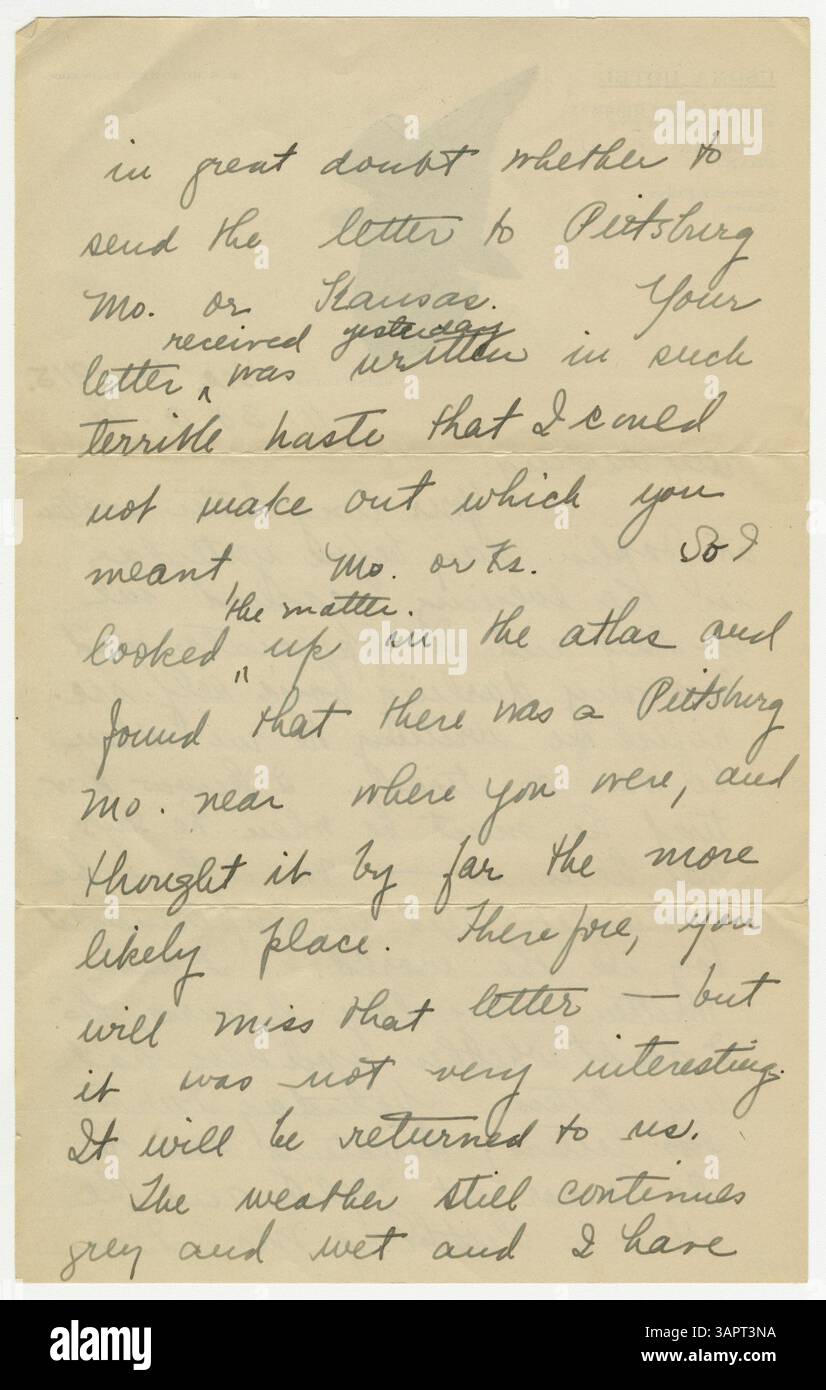 in great doubt whether to
send the letter to Pittsburg
Mo. or Kansas. Your
received yesterday
letter ^ was written in such
terrible haste that I could
not make out which you
meant, Mo. or Ks. So I
the matter.
looked ^ up in the atlas and
found that there was a Pittsburg
Mo. near where you were, and
thought it by far the more
likely place. Therefore, you
will miss that letter — but
it was not very interesting.
It will be returned to us.
The weather still continues
grey and wet and I have
alamy
Image ID: 3APT3NA
www.alamy.com